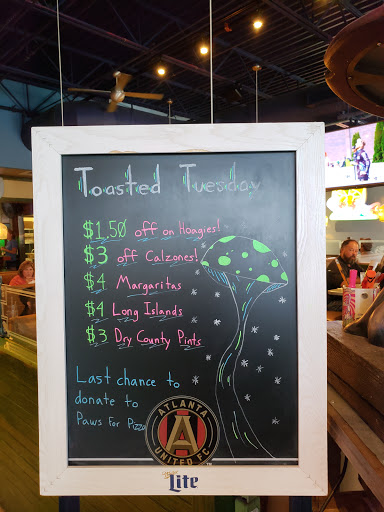 Toasted Tuesday
$1.50 off on Hoagies!
$3 off Calzones!
$4 Margaritas
$4 Long Islands
$3 Dry County Pints
Last chance to
donate to
Paws For Pizza
ATLANTA
A
UNITED FC
Lite